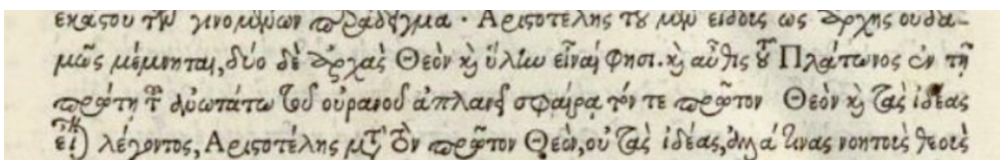 ἑκάστου τῶν γινομένων παράδειγμα· Ἀριστοτέλης τοῦ μὲν εἴδους ὡς ἀρχῆς οὐδα-
μῶς μέμνηται, δύο δὲ ἀρχὰς Θεὸν καὶ ὕλην εἶναί φησι. καὶ αὖθις τοῦ Πλάτωνος ἐν τῇ
πρώτῃ τῇ ἀνωτάτω τοῦ οὐρανοῦ ἀπλανεῖ σφαίρᾳ τόν τε πρῶτον Θεὸν καὶ τὰς ἰδέας
εἶναι λέγοντος, Ἀριστοτέλης μετὰ τὸν πρῶτον Θεὸν, οὐ τὰς ἰδέας, ἀλλά τινας νοητοὺς θεοὺς